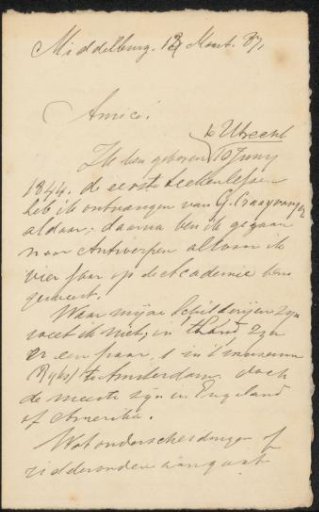 Middelburg. 18 Maart. 87,
Amice.
te Utrecht
Ik ben geboren 10 Juny
1844. de eerste teekenlessen
heb ik ontvangen van G. Craayvanger
aldaar; daarna ben ik gegaan
naar Antwerpen alwaar ik
vier jaar op de Academie ben
geweest.
Waar mijne Schilderijen zyn
weet ik niet, in thans zyn
er een paar, 1 in 't museum
(Ryks) te Amsterdam doch
de meeste zyn in Engeland
of Amerika.
Wat onderscheidingen of
ridderorden aangaat